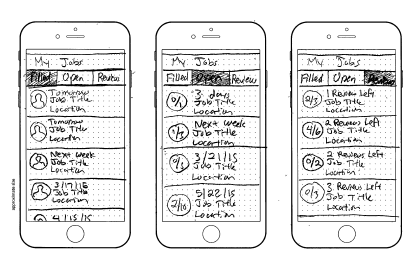 My Jobs
Filled Open Review
Tomorrow
Job Title
Location
Tomorrow
Job Title
Location
Next Week
Job Title
Location
3/17/15
Job Title
Location
4/15/15
My Jobs
Filled Open Review
0/1 3 days
Job Title
Location
0/1 Next Week
Job Title
Location
0/1 3/21/15
Job Title
Location
2/10 5/22/15
Job Title
Location
My Jobs
Filled Open Review
0/3 1 Review Left
Job Title
Location
4/6 2 Reviews Left
Job Title
Location
0/2 2 Reviews Left
Job Title
Location
0/3 3 Reviews Left
Job Title
Location